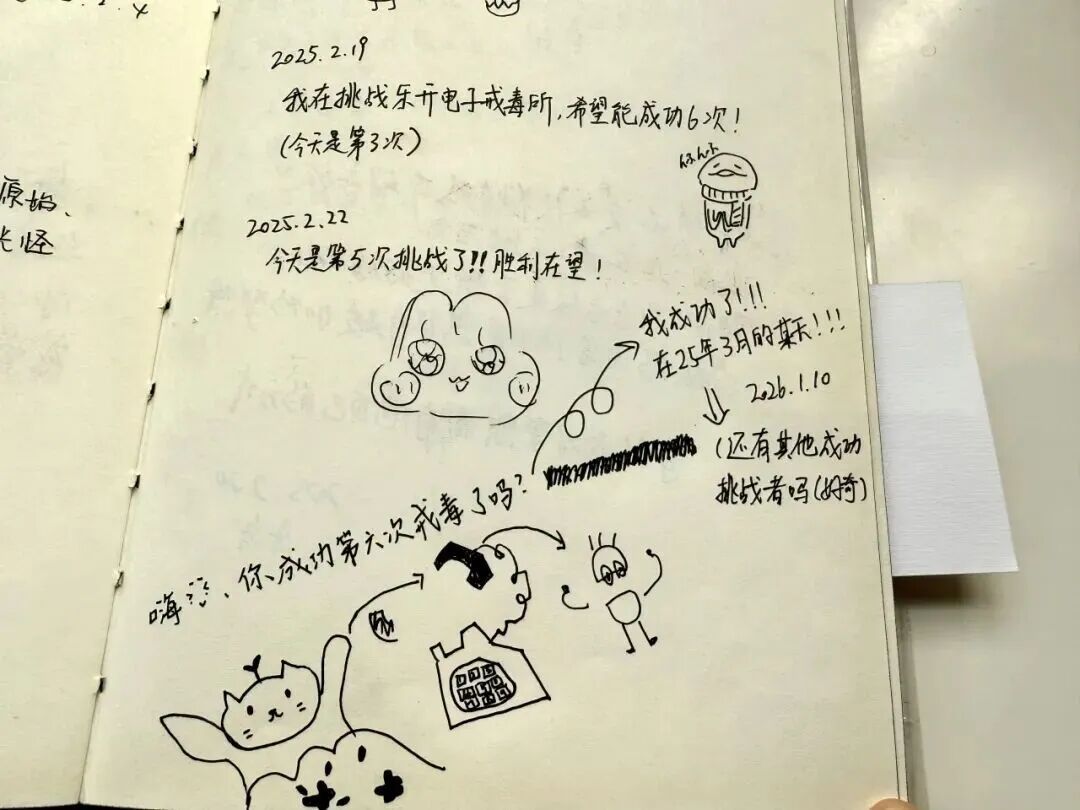 2025.2.19
我在挑战乐开电子戒毒所,希望能成功6次!
(今天是第3次)
2025.2.22
今天是第5次挑战了!!胜利在望!
我成功了!!!
在25年3月的某天!!!
2026.1.10
(还有其他成功
挑战者吗(好奇)
嗨、你成功第六次戒毒了吗?
原始、
怪